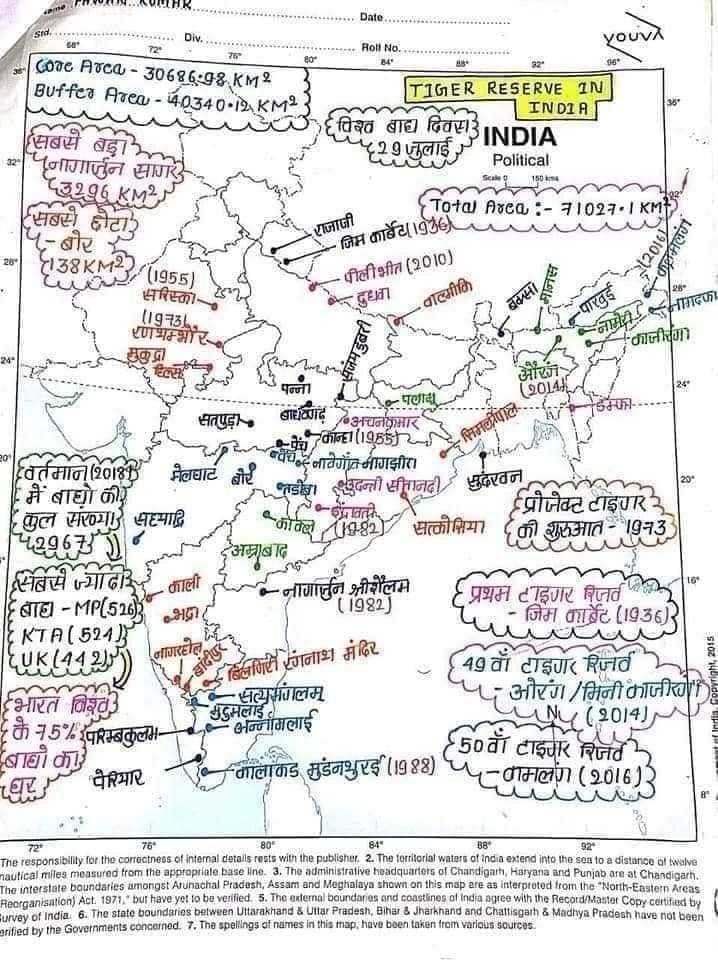 Name PAWAN KUMAR
Date
Std.
Div.
Roll No.
YOUVA
68° 72° 76° 80° 84° 88° 92° 96°
Core Area - 30686.98 KM2
Buffer Area - 40340.12 KM2
TIGER RESERVE IN
INDIA
विश्व बाघ दिवस
29 जुलाई
INDIA
Political
Scale 0 150 kms
सबसे बड़ा
नागार्जुन सागर
3296 KM2
Total Area :- 71027.1 KM2
सबसे छोटा
- बोर
138 KM2
राजाजी
जिम कार्बेट (1936)
पीलीभीत (2010)
दुधवा
वाल्मीकि
बक्सा
मानस
पाखुई
(2016)
कामलंग
नामदफा
नामेरी
काजीरंगा
(1955)
सरिस्का
(1973)
रणथम्भौर
मुकुंद्रा
हिल्स
औरंग
(2014)
डम्फा
पन्ना
संजय डुबरी
पलामू
सतपुड़ा
बांधवगढ़
अचनकमार
कान्हा (1955)
सिमलीपाल
पेंच
पेंच
नावेगाँव नागझीरा
मेलघाट
बोर
ताडोबा
उदन्ती सीतानदी
सुंदरवन
इंद्रावती
(1982)
सत्कोसिया
वर्तमान (2018)
में बाघो की
कुल संख्या
2967
सहयाद्रि
कावल
अम्राबाद
प्रोजेक्ट टाइगर
की शुरुआत - 1973
सबसे ज्यादा
बाघ - MP(526)
KTA (524)
UK (442)
काली
भद्रा
नागार्जुन श्रीशैलम
(1982)
प्रथम टाइगर रिजर्व
- जिम कार्बेट (1936)
नागरहोल
बांदीपुर
बिलगिरी रंगनाथ मंदिर
49 वाँ टाइगर रिजर्व
- औरंग / मिनी काजीरंगा
(2014)
N
सत्यमंगलम
मुदुमलाई
अन्नामलाई
भारत विश्व
के 75%
बाघो का
घर
परम्बिकुलम
पेरियार
कालाकड मुंडनथुरई (1988)
50 वाँ टाइगर रिजर्व
- कामलंग (2016)
72° 76° 80° 84° 88° 92°
The responsibility for the correctness of internal details rests with the publisher. 2. The territorial waters of India extend into the sea to a distance of twelve
nautical miles measured from the appropriate base line. 3. The administrative headquarters of Chandigarh, Haryana and Punjab are at Chandigarh.
The interstate boundaries amongst Arunachal Pradesh, Assam and Meghalaya shown on this map are as interpreted from the "North-Eastern Areas
Reorganisation) Act. 1971," but have yet to be verified. 5. The external boundaries and coastlines of India agree with the Record/Master Copy certified by
Survey of India. 6. The state boundaries between Uttarakhand & Uttar Pradesh, Bihar & Jharkhand and Chattisgarh & Madhya Pradesh have not been
erified by the Governments concerned. 7. The spellings of names in this map, have been taken from various sources.